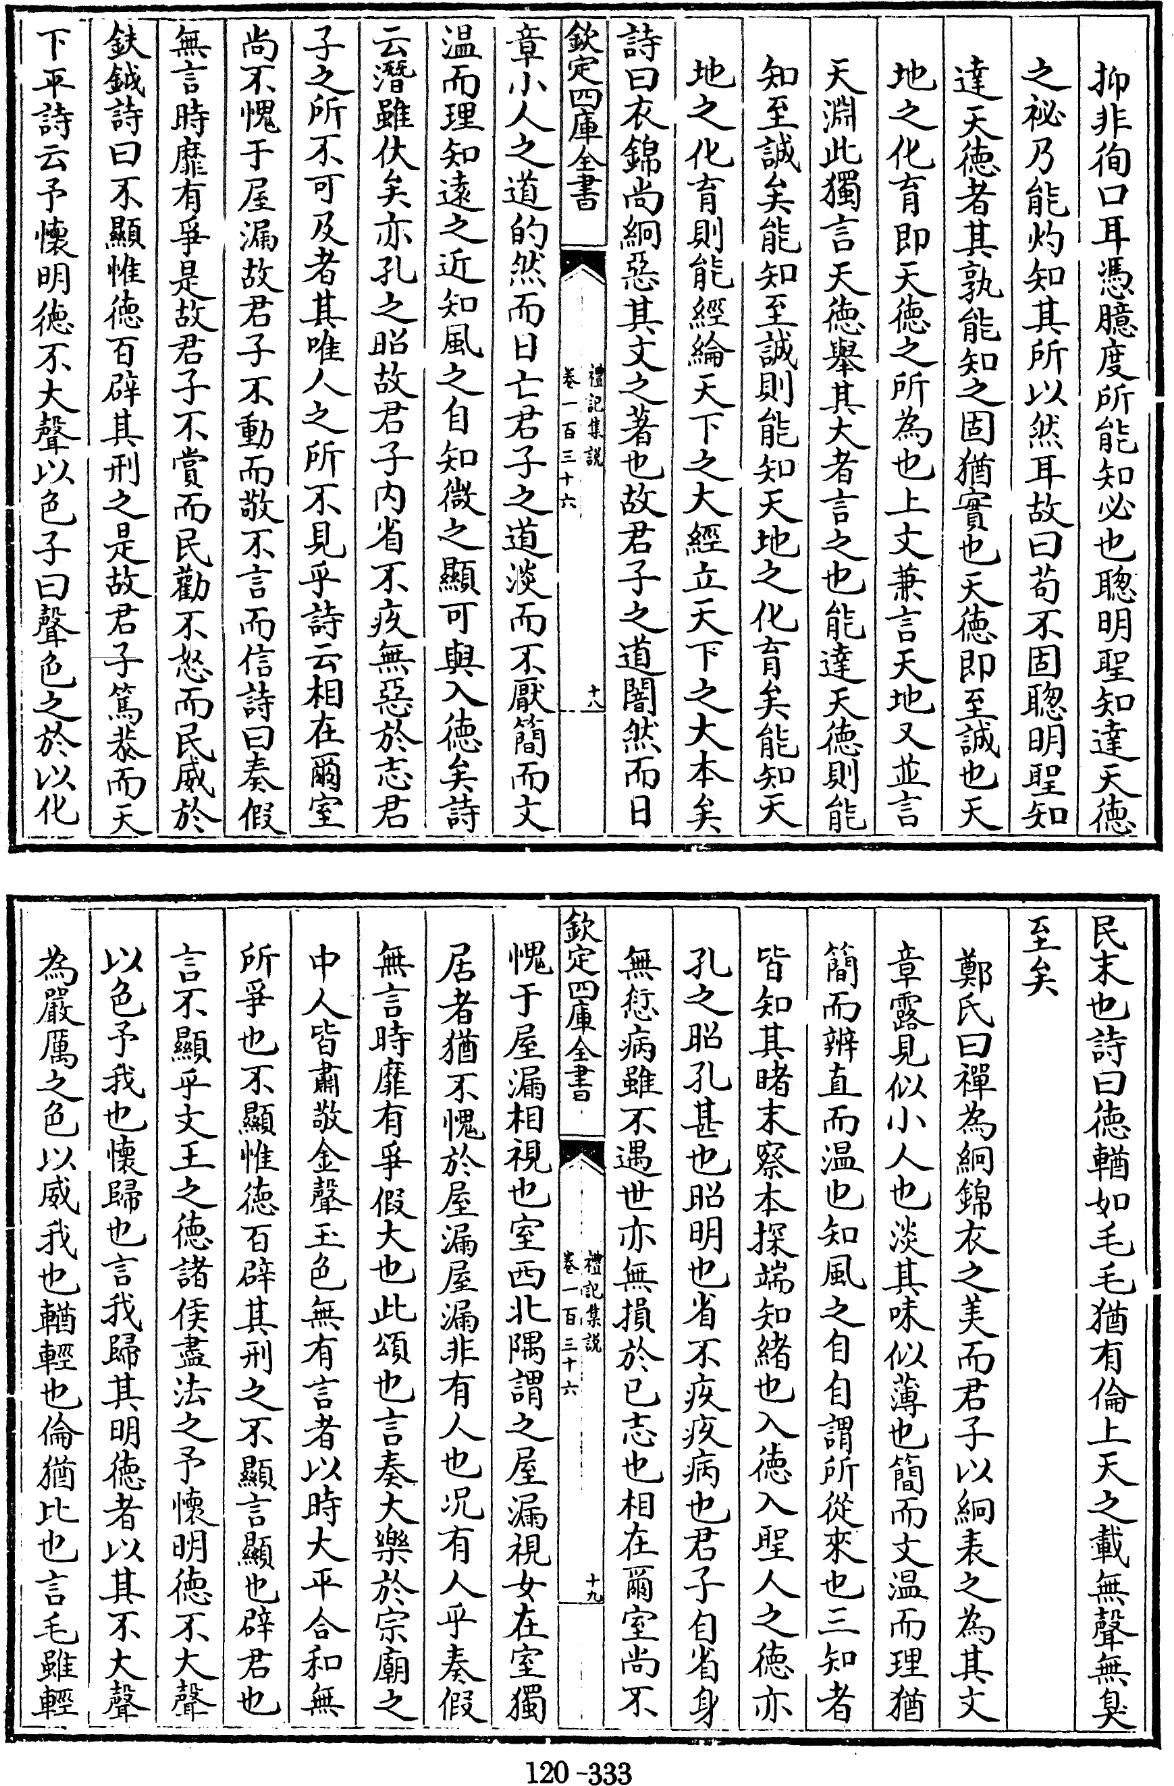 抑非徇口耳憑臆度所能知必也聰明聖知達天徳
之祕乃能灼知其所以然耳故曰茍不固聰明聖知
達天徳者其孰能知之固猶實也天徳即至誠也天
地之化育即天徳之所為也上文兼言天地又並言
天淵此獨言天徳舉其大者言之也能達天徳則能
知至誠矣能知至誠則能知天地之化育矣能知天
地之化育則能經綸天下之大經立天下之大本矣
詩曰衣錦尚絅惡其文之著也故君子之道闇然而日
欽定四庫全書
禮記集説
卷一百三十六
十八
章小人之道的然而日亡君子之道淡而不厭簡而文
温而理知逺之近知風之自知微之顯可與入徳矣詩
云潛雖伏矣亦孔之昭故君子内省不疚無惡於志君
子之所不可及者其唯人之所不見乎詩云相在爾室
尚不愧于屋漏故君子不動而敬不言而信詩曰奏假
無言時靡有爭是故君子不賞而民勸不怒而民威於
鈇鉞詩曰不顯惟徳百辟其刑之是故君子篤恭而天
下平詩云予懐明徳不大聲以色子曰聲色之於以化
民末也詩曰徳輶如毛毛猶有倫上天之載無聲無臭
至矣
鄭氏曰襌為絅錦衣之美而君子以絅表之為其文
章露見似小人也淡其味似薄也簡而文温而理猶
簡而辨直而温也知風之自自謂所從來也三知者
皆知其睹末察本探端知緒也入徳入聖人之徳亦
孔之昭孔甚也昭明也省不疚疚病也君子自省身
無愆病雖不遇世亦無損於已志也相在爾室尚不
欽定四庫全書
禮記集説
卷一百三十六
十九
愧于屋漏相視也室西北隅謂之屋漏視女在室獨
居者猶不愧於屋漏屋漏非有人也况有人乎奏假
無言時靡有爭假大也此頌也言奏大樂於宗廟之
中人皆肅敬金聲玉色無有言者以時大平合和無
所爭也不顯惟徳百辟其刑之不顯言顯也辟君也
言不顯乎文王之徳諸侯盡法之予懐明徳不大聲
以色予我也懐歸也言我歸其明徳者以其不大聲
為嚴厲之色以威我也輶輕也倫猶比也言毛雖輕
120-333